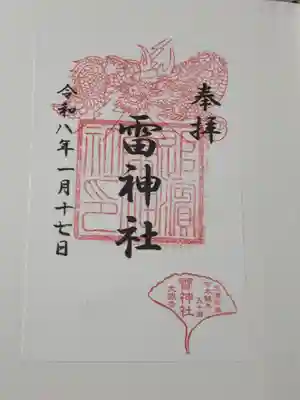 奉拝
雷神社
令和八年一月十七日
雷神社